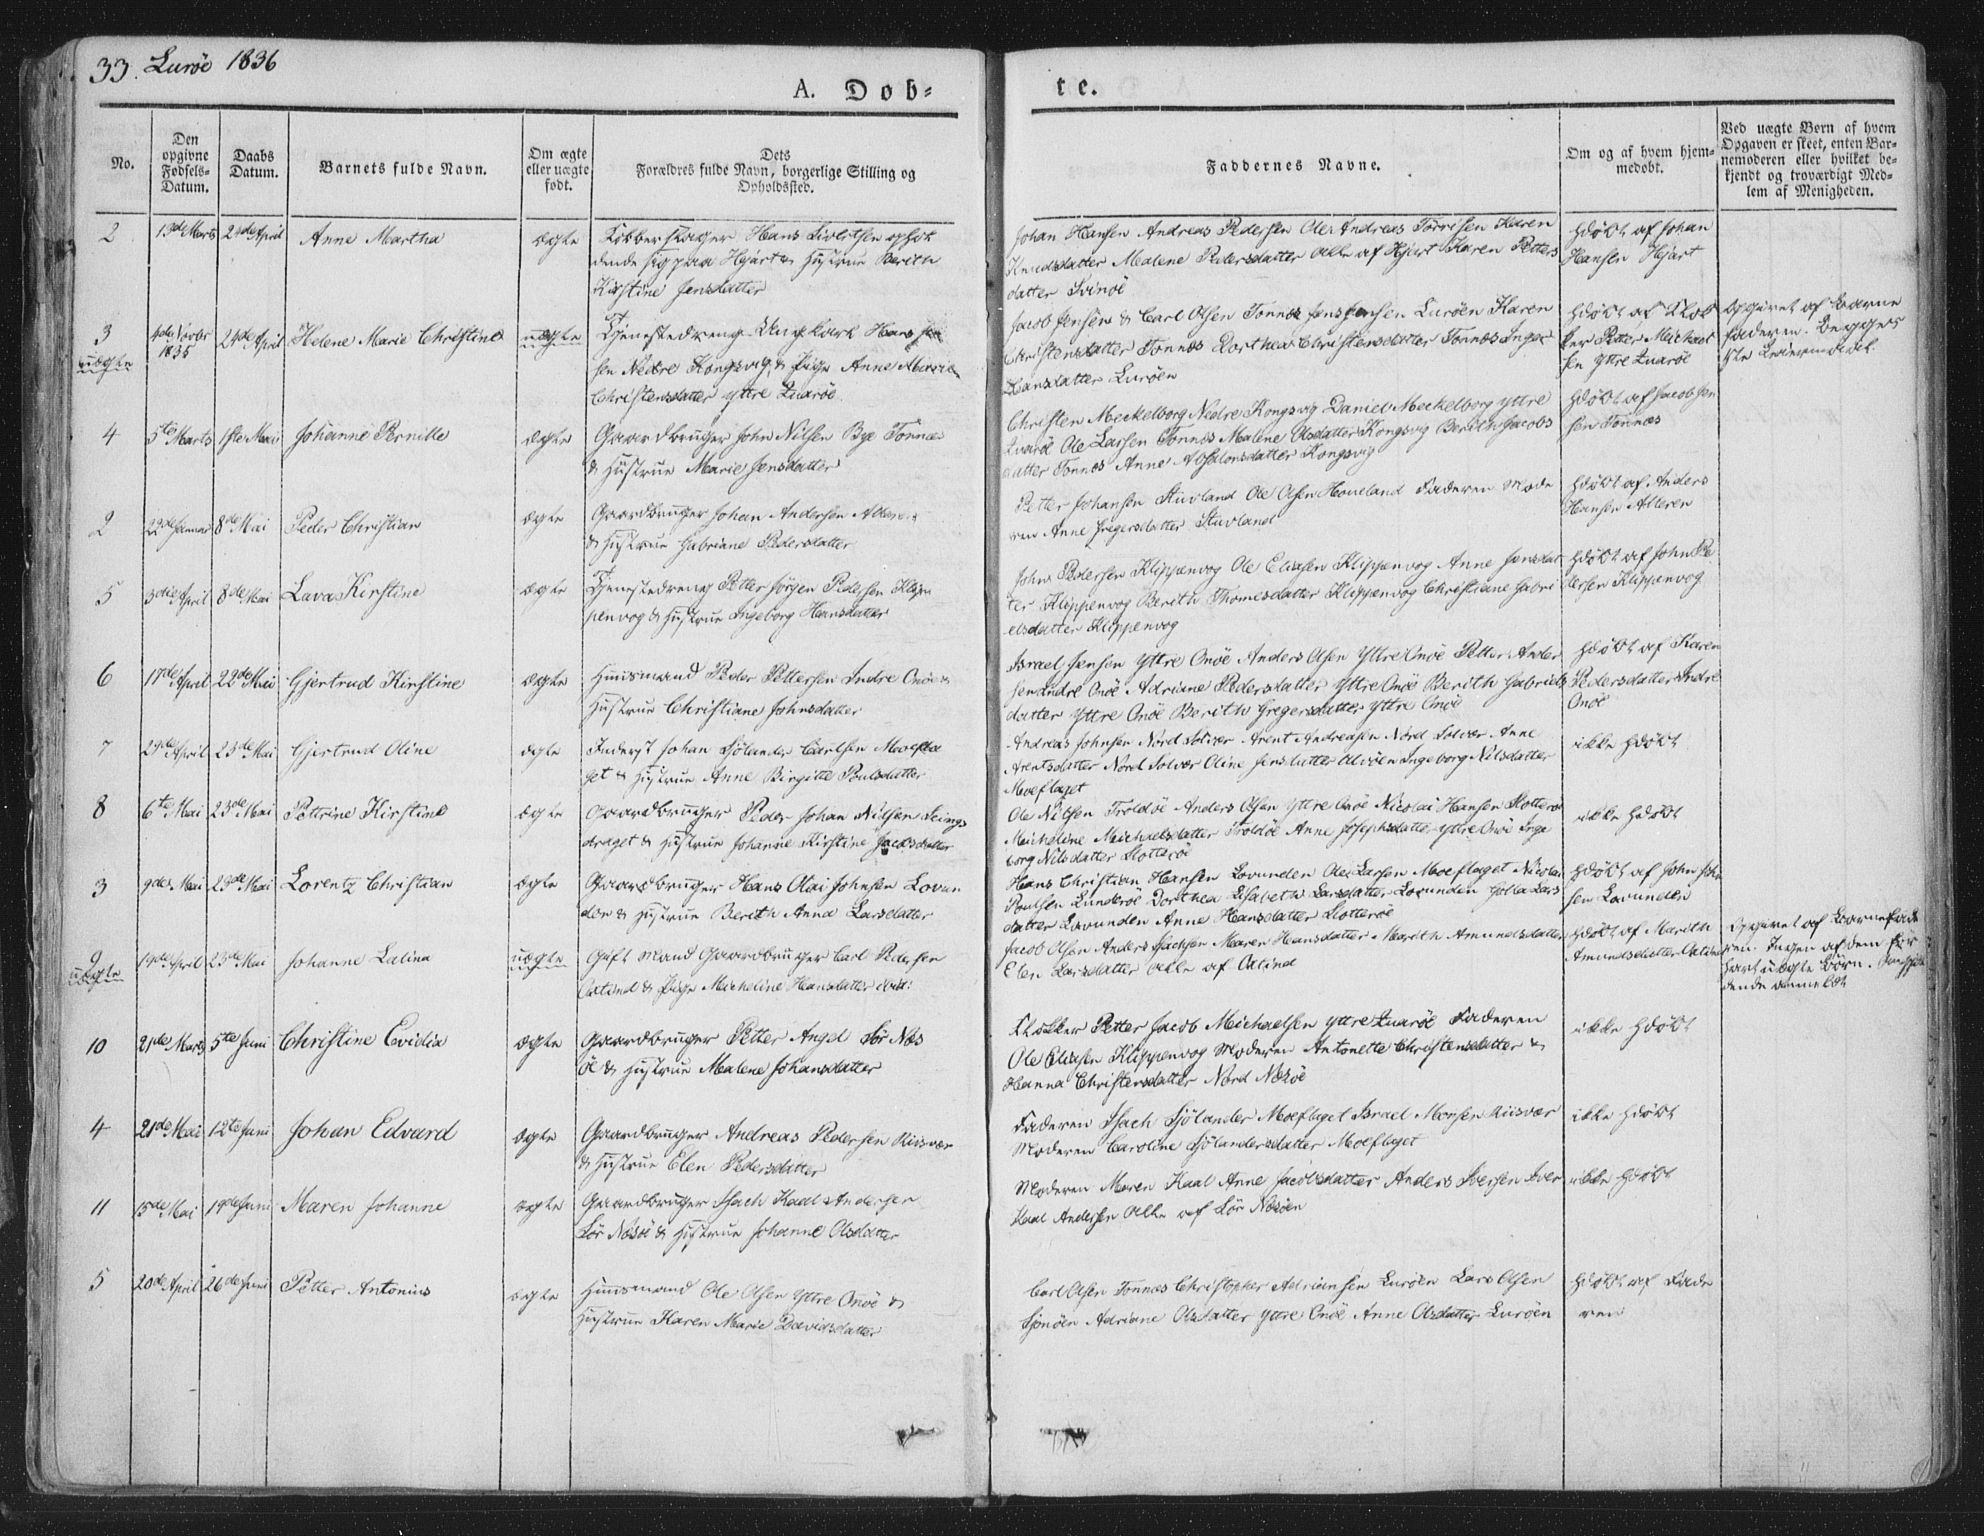 33. Lurøe 1836
A. Døb=
te.
No.
Den opgivne Fødsels-Datum.
Daabs Datum.
Barnets fulde Navn.
Om ægte eller uægte født.
Dets Forældres fulde Navn, borgerlige Stilling og Opholdssted.
Faddernes Navne.
Om og af hvem hjemmedøbt.
Ved uægte Børn af hvem Opgaven er skeet, enten Barnemoderen eller hvilket bekjendt og troværdigt Medlem af Menigheden.
2 13de Marts 24de April Anne Martha ægte
Hans
dende sig paa Hjart & Hustrue Berith
Kirstine Jensdatter
Johan Hansen Andreas Pedersen Ole Andreas Torrisen Karen
Knudsdatter Malene Pedersdatter Alle af Hjart Karen Petters
datter Svinøe
Hdøbt af Johan
Hansen Hjart
3 uægte 4de Novbr 1835 24de April Helene Marie Christine uægte
Tjenestedreng Ungkarl Hans Jen
sen Nedre Kongsvig & Pige Anne Marie
Christensdatter Yttre Quarøe
Jacob Jensen & Carl Olsen Tonnes Jens Jensen Lurøen Karen
Christensdatter Tonnes Dorthea Christensdatter Tonnes Inger
Hansdatter Lurøen
Hdøbt af Klok
ker Petter Michael
sen Yttre Quarøe
Opgivet af Barne
faderen. Begges
1ste Leiermaal.
4 5te Marts 1ste Mai Johanne Pernille ægte
Gaardbruger John Nilsen Bye Tonnes
& Hustrue Marie Jensdatter
Christen Meckelborg Nedre Kongsvig Daniel Meckelborg Yttre
Quarøe Ole Larsen Tonnes Malene Olsdatter Kongsvig Berith Jacobs
datter Tonnes Anne Absalonsdatter Kongsvig
Hdøbt af Jacob Jen
sen Tonnes
2 22de Januar 8de Mai Peder Christian ægte
Gaardbruger Johan Andersen
& Hustrue Gabriane Pedersdatter
Petter Johansen Stuvland Ole Olsen Hoveland Faderen Mode
ren Anne Gregersdatter Stuvland
Hdøbt af Anders
Hansen Alteren
5 3die April 8de Mai Lava Kirstine ægte
Tjenestedreng Petter Jørgen Pedersen Klip
penvog & Hustrue Ingeborg Hansdatter
John Pedersen Klippenvog Ole Eliasen Klippenvog Anne Jensdat
ter Klippenvog Berith Thomesdatter Klippenvog Christiane Gabri
elsdatter Klippenvog
Hdøbt af John Pe
dersen Klippenvog
6 17de April 22de Mai Gjertrud Kirstine ægte
Huusmand Peder Pettersen Indre Onøe &
Hustrue Christiane Johnsdatter
Israel Jensen Yttre Onøe Anders Olsen Yttre Onøe Petter Ander
sen Indre Onøe Adriane Pedersdatter Yttre Onøe Berith Gabriels
datter Yttre Onøe Berith Gregersdatter Yttre Onøe
Hdøbt af Karen
Pedersdatter Indre
Onøe
7 29de April 23de Mai Gjertrud Oline ægte
Inderst Johan Sjølander Carlsen Moefla
get & Hustrue Anne Birgitte Poulsdatter
Andreas Johnsen Nord Solvær Arent Andreasen Nord Solvær Anne
Arentsdatter Nord Solvær Oline Jensdatter Ingeborg Nilsdatter
Moeflaget
ikke Hdøbt
8 6te Mai 23de Mai Pettrine Kirstine ægte
Gaardbruger Peder Johan Nilsen
draget & Hustrue Johanne Kirstine Jacobsdatter
Ole Nilsen Troldøe Anders Olsen Yttre Onøe Nicolai Hansen Slotterøe
Micheline Michaelsdatter Troldøe Anne Josephsdatter Yttre Onøe Inge
borg Nilsdatter Slotterøe
ikke Hdøbt
3 9de Mai 23de Mai Lorentz Christian ægte
Gaardbruger Hans Olai Johnsen Lovun
den & Hustrue Berith Anna Larsdatter
Hans Christian Hansen Lovunden Ole Larsen Moeflaget Nicolai
Poulsen Lunderøe Dorthea Elisabeth Larsdatter Lovunden Lars
datter Lovunden Anne Hansdatter Slotterøe
Hdøbt af John Joh
sen Lovunden
9 uægte 19de April 23de Mai Johanne Lalina uægte
Gift Mand Gaardbruger Carl Pedersen
& Pige Micheline Hansdatter ibid:
Jacob Olsen Anders Isachsen Maren Hansdatter Marith Amundsdatter
Elen Larsdatter Alle af
Hdøbt af Marith
Amundsdatter
Opgivet af Barnefade
ren. Ingen af dem før
havt uægte Børn.
dende anmeldt
10 21de Marts 5te Juni Christine Evidia ægte
Gaardbruger Petter Angel Sør Næs
øe & Hustrue Malene Johansdatter
Klokker Petter Jacob Michaelsen Yttre Quarøe Faderen
Ole Eliasen Klippenvog Moderen Antonette Christensdatter &
Hanna Christensdatter Nord Næsøe
ikke Hdøbt
4 21de Mai 12te Juni Johan Edvard ægte
Gaardbruger Andreas Pedersen Riisvær
& Hustrue Elen Pedersdatter
Faderen Isach Sjølander Moeflaget Israel Monsen Riisvær
Moderen Caroline Sjølandersdatter Moeflaget
ikke Hdøbt
11 15de Mai 19de Juni Maren Johanne ægte
Gaardbruger Isach Kaal Andersen
Sør Næsøe & Hustrue Johanne Olsdatter
Moderen Maren Kaal Anne Jacobsdatter Anders Iversen Iver
Kaal Andersen Alle af Sør Næsøen
ikke Hdøbt
5 20de April 26de Juni Petter Antonius ægte
Huusmand Ole Olsen Yttre Onøe &
Hustrue Karen Marie Davidsdatter
Carl Olsen Tonnes Christopher Adriansen Lurøen Lars Olsen
Sjonøen Adriane Olsdatter Yttre Onøe Anne Olsdatter Lurøen
Hdøbt af Fade
ren